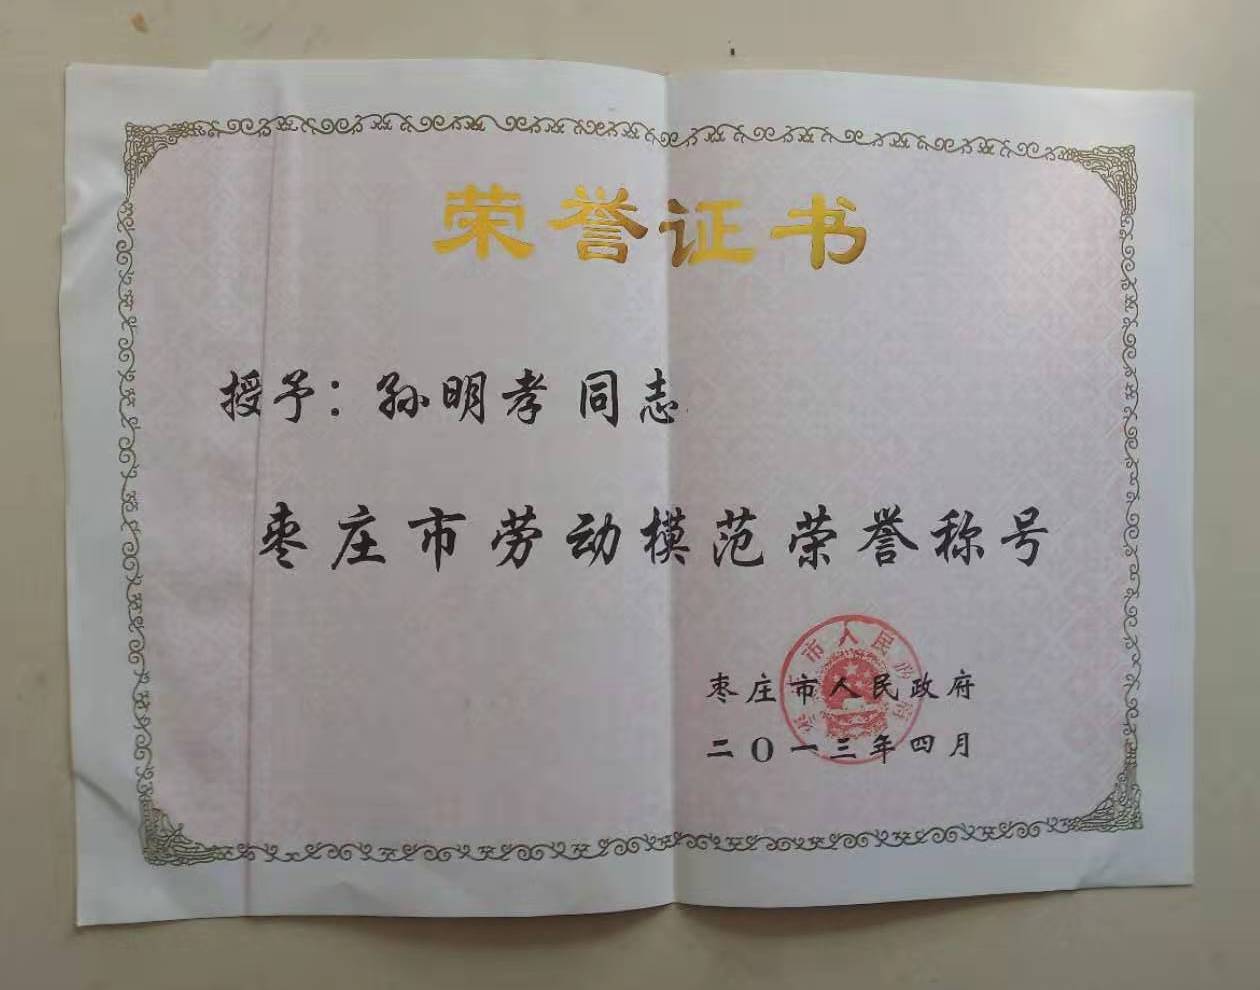 荣誉证书
授予：孙明孝 同志
枣庄市劳动模范荣誉称号
枣庄市人民政府
二〇一三年四月
枣庄市人民政府